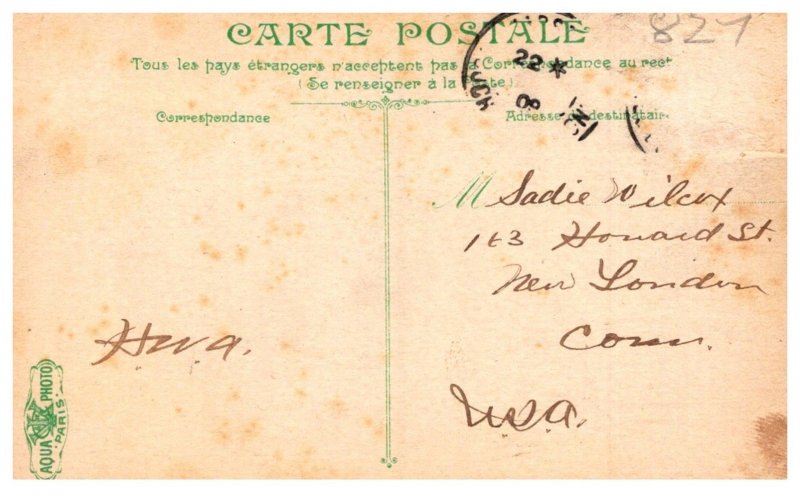 CARTE POSTALE
827
Tous les pays étrangers n'acceptent pas la Correspondance au recto
(Se renseigner à la Poste)
22 *
08
Correspondance
Adresse du destinataire
M Sadie Wilcox
163 Howard St.
New London
Conn.
USA.
AQUA PHOTO
PARIS